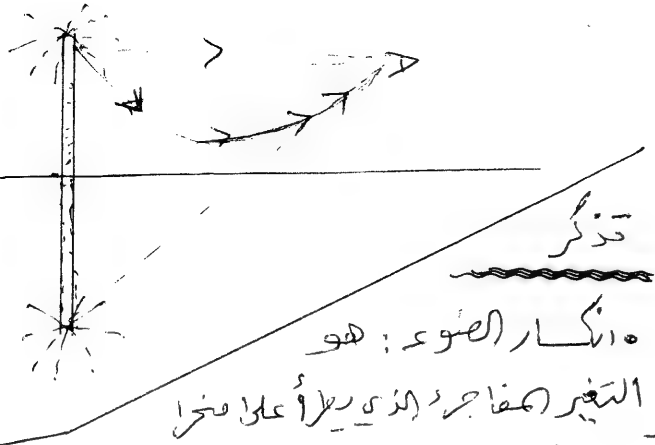 تذكر
• انكسار الضوء : هو
التغير المفاجئ الذي يطرأ على منحى